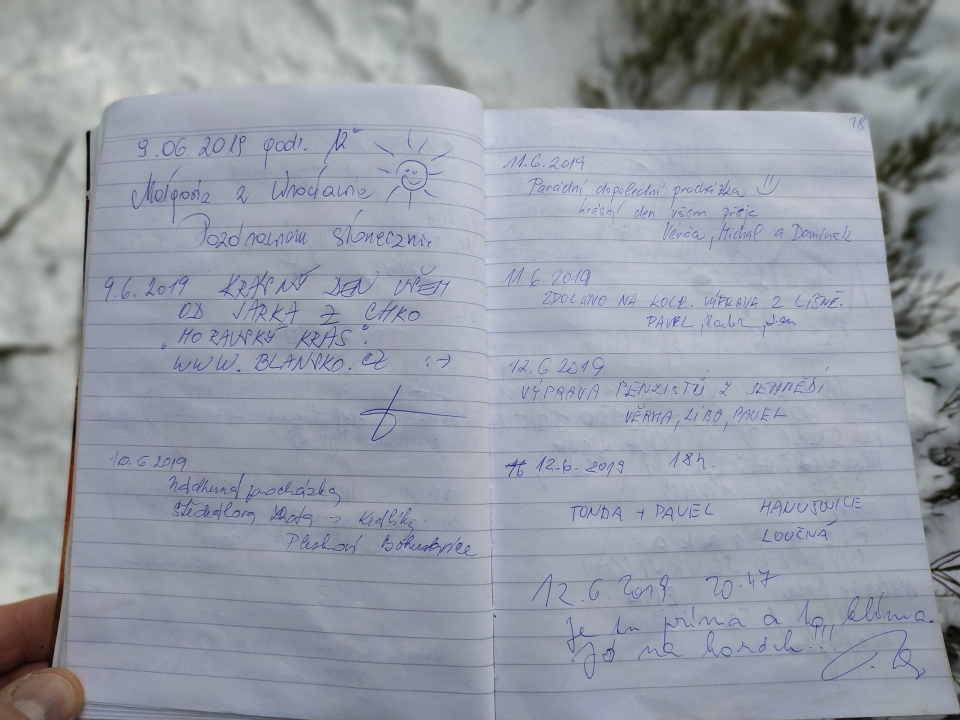 9.06.2019 godz. 12
Małgosia z Wrocławia
Pozdrawiam słonecznie
9.6.2019 KRÁSNÝ DEN VŠEM
OD JÁRKA Z CHKO
„MORAVSKÝ KRAS".
WWW.BLANSKO.CZ :-)
10.6.2019
Nádherná procházka
18
11.6.2019
Parádní dopolední procházka
krásný den všem přeje
Verča, Michal a Dominek
11.6 2019
ZDOLÁNO NA KOLE. VÝPRAVA Z LÍŠNĚ.
PAVEL,
12.6.2019
VÝPRAVA PENZISTŮ Z
VĚRKA, LÍBA, PAVEL
12.6.2019 18h.
TONDA + PAVEL HANUŠOVICE
LOUČNÁ
12.6.2019 20.47
Je tu príma a klima.
Jó na horách!!!